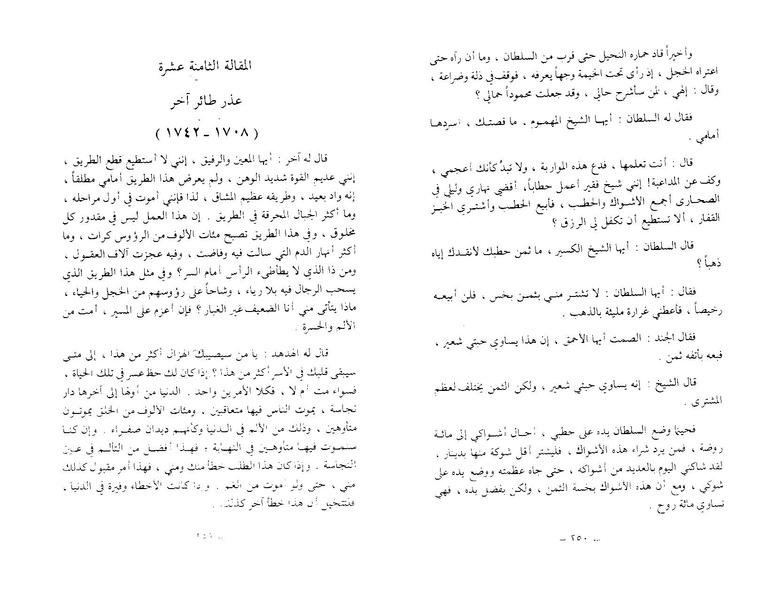 وأخيراً قاد حماره النحيل حتى قرب من السلطان ، وما أن رآه حتى
اعتراه الخجل ، إذ رأى تحت الخيمة وجهاً يعرفه ، فوقف في ذلة وضراعة ،
وقال : إلهي ، لمن سأشرح حالي ، وقد جعلت محموداً حمالي ؟
فقال له السلطان : أيها الشيخ المهموم ، ما قصتك ، أسردها
أمامي .
قال : أنت تعلمها ، فدع هذه المواربة ، ولا تبدُ كأنك أعجمي ،
وكف عن المداعبة! إنني شيخ فقير أعمل حطاباً، أقضي نهاري وليلي في
الصحارى أجمع الأشواك والحطب ، فأبيع الحطب وأشتري الخبز
القفار ، ألا تستطيع أن تكفل لي الرزق ؟
قال السلطان : أيها الشيخ الكسير ، ما ثمن حطبك لأنقدك إياه
ذهباً ؟
فقال : أيها السلطان : لا تشتر مني بثمن بخس ، فلن أبيعه
رخيصاً ، فأعطني غرارة مليئة بالذهب .
فقال الجند : الصمت أيها الأحمق ، إن هذا يساوي حبتي شعير ،
فبعه بأتفه ثمن .
قال الشيخ : إنه يساوي حبتي شعير ، ولكن الثمن يختلف لعظم
المشترى .
فحينما وضع السلطان يده على حطبي ، أحال أشواكي إلى مائة
روضة ، فمن يرد شراء هذه الأشواك ، فليشتر أقل شوكة منها بدينار ،
لقد شاكني اليوم بالعديد من أشواكه ، حتى جاء عظمته ووضع يده على
شوكي ، ومع أن هذه الأشواك بخسة الثمن ، ولكن بفضل يده ، فهي
تساوي مائة روح .
ــ ٢٥٠ ــ
المقالة الثامنة عشرة
عذر طائر آخر
( ١٧٠٨ - ١٧٤٢ )
قال له آخر : أيها المعين والرفيق ، إنني لا أستطيع قطع الطريق ،
إنني عديم القوة شديد الوهن ، ولم يعرض هذا الطريق أمامي مطلقاً ،
إنه واد بعيد ، وطريقه عظيم المشاق ، لذا فإنني أموت في أول مراحله ،
وما أكثر الجبال المحرقة في الطريق . إن هذا العمل ليس في مقدور كل
مخلوق ، وفي هذا الطريق تصبح مئات الألوف من الرؤوس كرات ، وما
أكثر أنهار الدم التي سالت فيه وفاضت ، وفيه عجزت آلاف العقول ،
ومن ذا الذي لا يطأطىء الرأس أمام السر ؟ وفي مثل هذا الطريق الذي
يسحب الرجال فيه بلا رياء ، وشاحاً على رؤوسهم من الخجل والحياء ،
ماذا يتأتى مني أنا الضعيف غير الغبار ؟ فإن أعزم على المسير ، أمت من
الألم والحسرة .
قال له الهدهد : يا من سيصيبك الهزال أكثر من هذا ، إلى متى
سيبقى قلبك في الأسر أكثر من هذا ؟ إذا كان لك حظ عسر في تلك الحياة ،
فسواء مت أم لا ، فكلا الأمرين واحد . الدنيا من أولها إلى آخرها دار
نجاسة ، يموت الناس فيها متعاقبين ، ومئات الألوف من الخلق يموتون
متأوهين ، وذلك من الألم في الدنيا وكأنهم ديدان صفراء . وإن كنا
سنموت فيها متأوهين في النهاية ، فهذا أفضل من التألم في عين
النجاسة . وإذا كان هذا الطلب خطأ منك ومني ، فهذا أمر مقبول كذلك
مني ، حتى ولو أموت من الغم . وإذا كانت الأخطاء وفيرة في الدنيا ،
فلنتخيل أن هذا خطأ آخر كذلك .